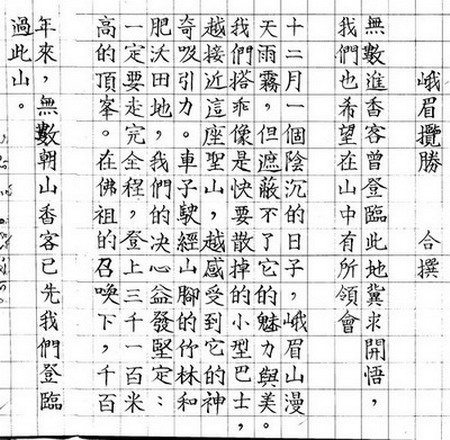 峨眉攬勝　合撰
無數進香客曾登臨此地冀求開悟，
我們也希望在山中有所領會
十二月一個陰沉的日子，峨眉山漫
天雨霧，但遮蔽不了它的魅力與美。
我們搭乘像是快要散掉的小型巴士，
越接近這座聖山，越感受到它的神
奇吸引力。車子駛經山腳的竹林和
肥沃田地，我們的决心益發堅定：
一定要走完全程，登上三千一百米
高的頂峯。在佛祖的召喚下，千百
年來，無數朝山香客已先我們登臨
過此山。